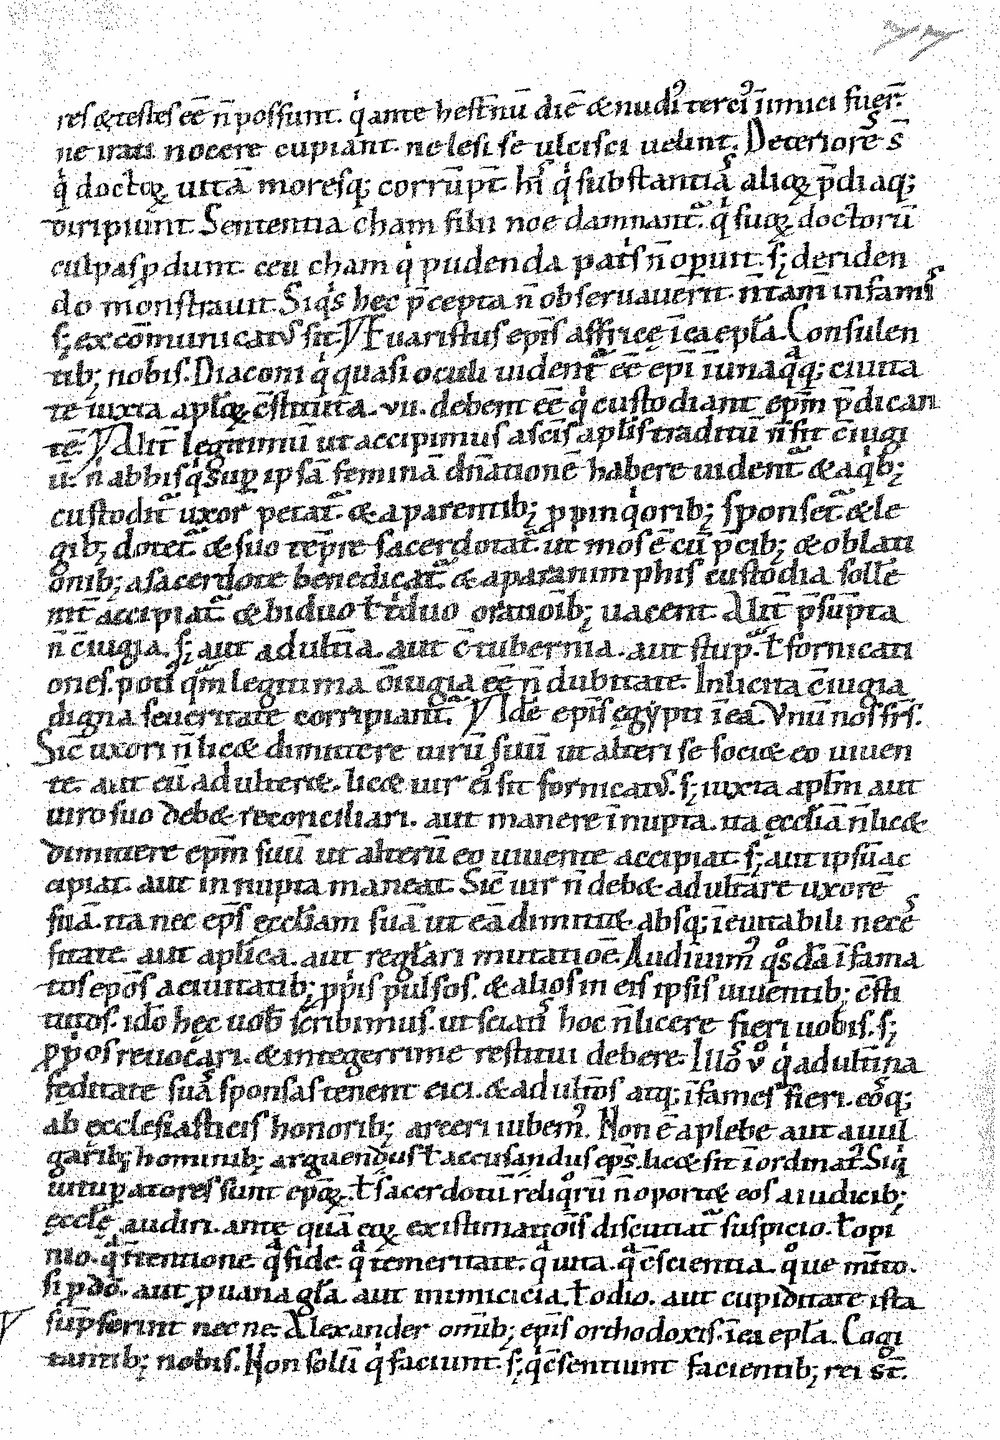 res &testes eē n̄ possunt. q̇ ante hest̄nū diē & nudi᾽ terci᾽ inimici fuer̄.
ne irati nocere cupiant. ne lesi se ulcisci uelint. Deteriorēs s̄
q̇ doctoꝝ uitā moresq; corrūpt̄. hi q̇ substantiā alioꝝ p̄diaq;
diripiunt. Sententia cham filii noe damnant᷑. q̇ suoꝝ doctorū
culpas ꝓdunt. ceu cham q̇ pudenda patris n̄ opuit. s; deriden
do monstrauit. Siq̇s hec p̄cepta n̄ obseruauerit. n̄ tam̄ infamis
s; excōmunicatus sit. Euaristus ep̄is affrice ī ea ep̄la. Consulen
tib; nobis. Diaconi q̇ quasi oculi uident᷑ eē ep̄i ī unaq̇q; ciuita
te iuxta ap̄loꝝ c̄stituta .vii. debent eē q̇ custodiant ep̄m p̄dican
tē. Alit̄ legitimū ut accipimus a sc̄is ap̄lis traditū n̄ fit c̄iugi
ū. n̄ ab his q̇ suꝑ ipsā feminā dn̄ationē habere uident᷑ & a q̇b;
custodit᷑ uxor petat᷑. & a parentib; ꝓpinq̇orib; sponset᷑ & le
gib; dotet᷑. & suo tēpre sacerdotat᷑ ut mos ē cū p̄cib; & oblati
onib; a sacerdote benedicat᷑. & a paranimphis custodia solle
nit̄ accipiat᷑. & biduo ł triduo oratioīb; uacent. Alit̄ p̄sūpta
n̄ c̄iugia. s; aut adult̄ia. aut c̄tubernia. aut stupra ł fornicati
ones. poti᾽ q̄m legitima c̄iugia eē n̄ dubitate. Inlicita c̄iugia
digna seueritate corripiant᷑. Idē ep̄is egypti ī ea. Vnū nos frs̄.
Sic̄ uxori n̄ lic& dimittere uirū suū ut alteri se soci& eo uiuen
te. aut eū adulter&. lic& uir ei᾽ sit fornicatus. s; iuxta ap̄lm aut
uiro suo deb& reconciliari. aut manere īnupta. ita eccl̄iā n̄ lic&
dimittere ep̄m suū ut alterū eo uiuente accipiat. s; aut ipsū ac
cipiat. aut innupta maneat. Sic̄ uir n̄ deb& adult̄are uxorē
suā. ita nec ep̄s eccl̄iam suā ut eā dimitt&. absq; ineuitabili necēs
sitate. aut ap̄lica. aut regl̄ari mutatioē. Audiuim᾽ qos̄dā īfama
tos ep̄os a ciuitatib; ꝓpris pulsos. & alios in eis ipsis uiuentib; c̄sti
tutos. ido hec uob̄ scribimus. ut sciatis hoc n̄ licere fieri uobis. s;
ꝓprios reuocari. & integerrime restitui debere. Illos ꝟo q̇ adult̄ina
feditate suas sponsas tenent eici. & adult̄os atq; īfames fieri. eosq;
ab ecclesiasticis honorib; arceri iubem᾽. Non ē a plebe aut a uul
garib; hominib; arguendus ł accusandus ep̄s. lic& sit īordinat᾽. Siq̇
uituꝑatores sunt ep̄oꝝ. ł sacerdotū reliqorū n̄ oport& eos a iudicib;
eccle audiri. ante quā eoꝝ existimatiōis discutiat᷑ suspicio. ł opi
nio. qa īntentione qa fide qa temeritate. qa uita. qa c̄scientia. qoue mito.
si ꝓ dō. aut ꝓ uana gl̄a. aut inimicicia. ł odio. aut cupiditate ista
sūpserint necne. Alexander omīb; ep̄is orthodoxis. ī ea ep̄la. Cogi
tantib; nobis. Non solū q̇ faciunt. s; q̇ c̄sentiunt facientib; rei st̄.